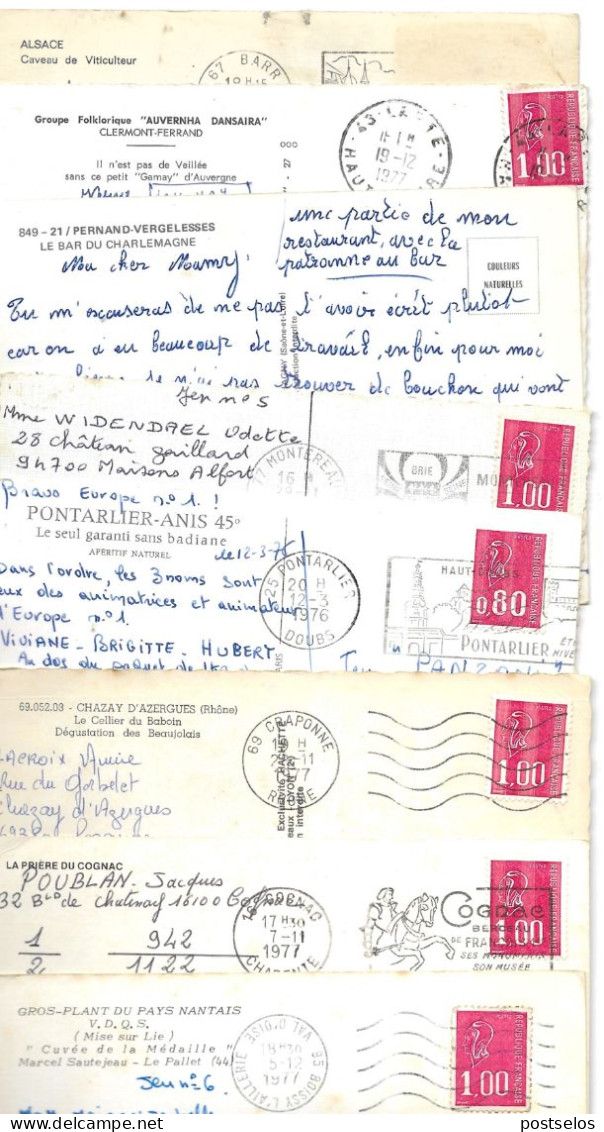 ALSACE
Caveau de Viticulteur
67 BARR
Groupe Folklorique "AUVERNHA DANSAIRA"
CLERMONT-FERRAND
Il n'est pas de Veillée
sans ce petit "Gamay" d'Auvergne
19-12
1977
1.00
849 - 21 / PERNAND-VERGELESSES
LE BAR DU CHARLEMAGNE
une partie de mon
restaurant, avec la
patronne au bar
COULEURS
NATURELLES
Mon cher Mamry
Tu m'excuseras de ne pas t'avoir écrit plutot
car on a eu beaucoup de travail, enfin pour moi
trouver de bouchon qui vont
Jeu n° 5
Mme WIDENDAEL Odette
28 Château gaillard
94700 Maisons Alfort
Bravo Europe n° 1. !
77 MONTEREAU
16 H
BRIE
MO
1.00
REPUBLIQUE FRANÇAISE
PONTARLIER-ANIS 45°
Le seul garanti sans badiane
APÉRITIF NATUREL
le 12-3-76
Dans l'ordre, les 3 noms sont
eux des animatrices et animateur
d'Europe n° 1.
VIVIANE - BRIGITTE - HUBERT
Au dos du paquet de
25 PONTARLIER
20 H
12-3
1976
DOUBS
HAUT-DOUBS
PONTARLIER
ETE
HIVE
0.80
REPUBLIQUE FRANÇAISE
PANZANI
69.052.03 - CHAZAY D'AZERGUES (Rhône)
Le Cellier du Baboin
Dégustation des Beaujolais
LACROIX
Rue du
Chazay d'Azergues
69 CRAPONNE
-11
1977
RHONE
Exclusivité HACHETTE
LYON (2)
1.00
REPUBLIQUE FRANÇAISE
LA PRIÈRE DU COGNAC
POUBLAN - Jacques
32 Bld de Chatenay 16100 Cognac
1 942
2 1122
16 COGNAC
17 H30
7-11
1977
CHARENTE
COGNAC
BERCEAU
DE FRANÇOIS
SES MONUMENTS
SON MUSÉE
1.00
REPUBLIQUE FRANÇAISE
GROS-PLANT DU PAYS NANTAIS
V.D.Q.S.
(Mise sur Lie)
" Cuvée de la Médaille "
Marcel Sautejeau - Le Pallet (44)
Jeu n° 6
95 BOISSY L'AILLERIE VAL D'OISE
18 H30
5-12
1977
1.00
REPUBLIQUE FRANÇAISE
© postselos